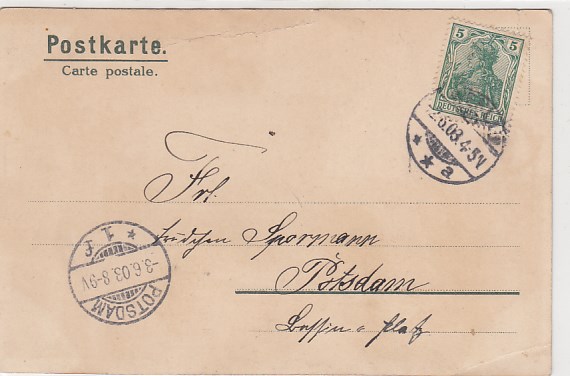 Postkarte.
Carte postale.
5 5
DEUTSCHES REICH
2.6.03.4-5V
* * a
Frl.
Spormann
Potsdam
Platz
* 1. f
-3.6.03.8-9V
POTSDAM